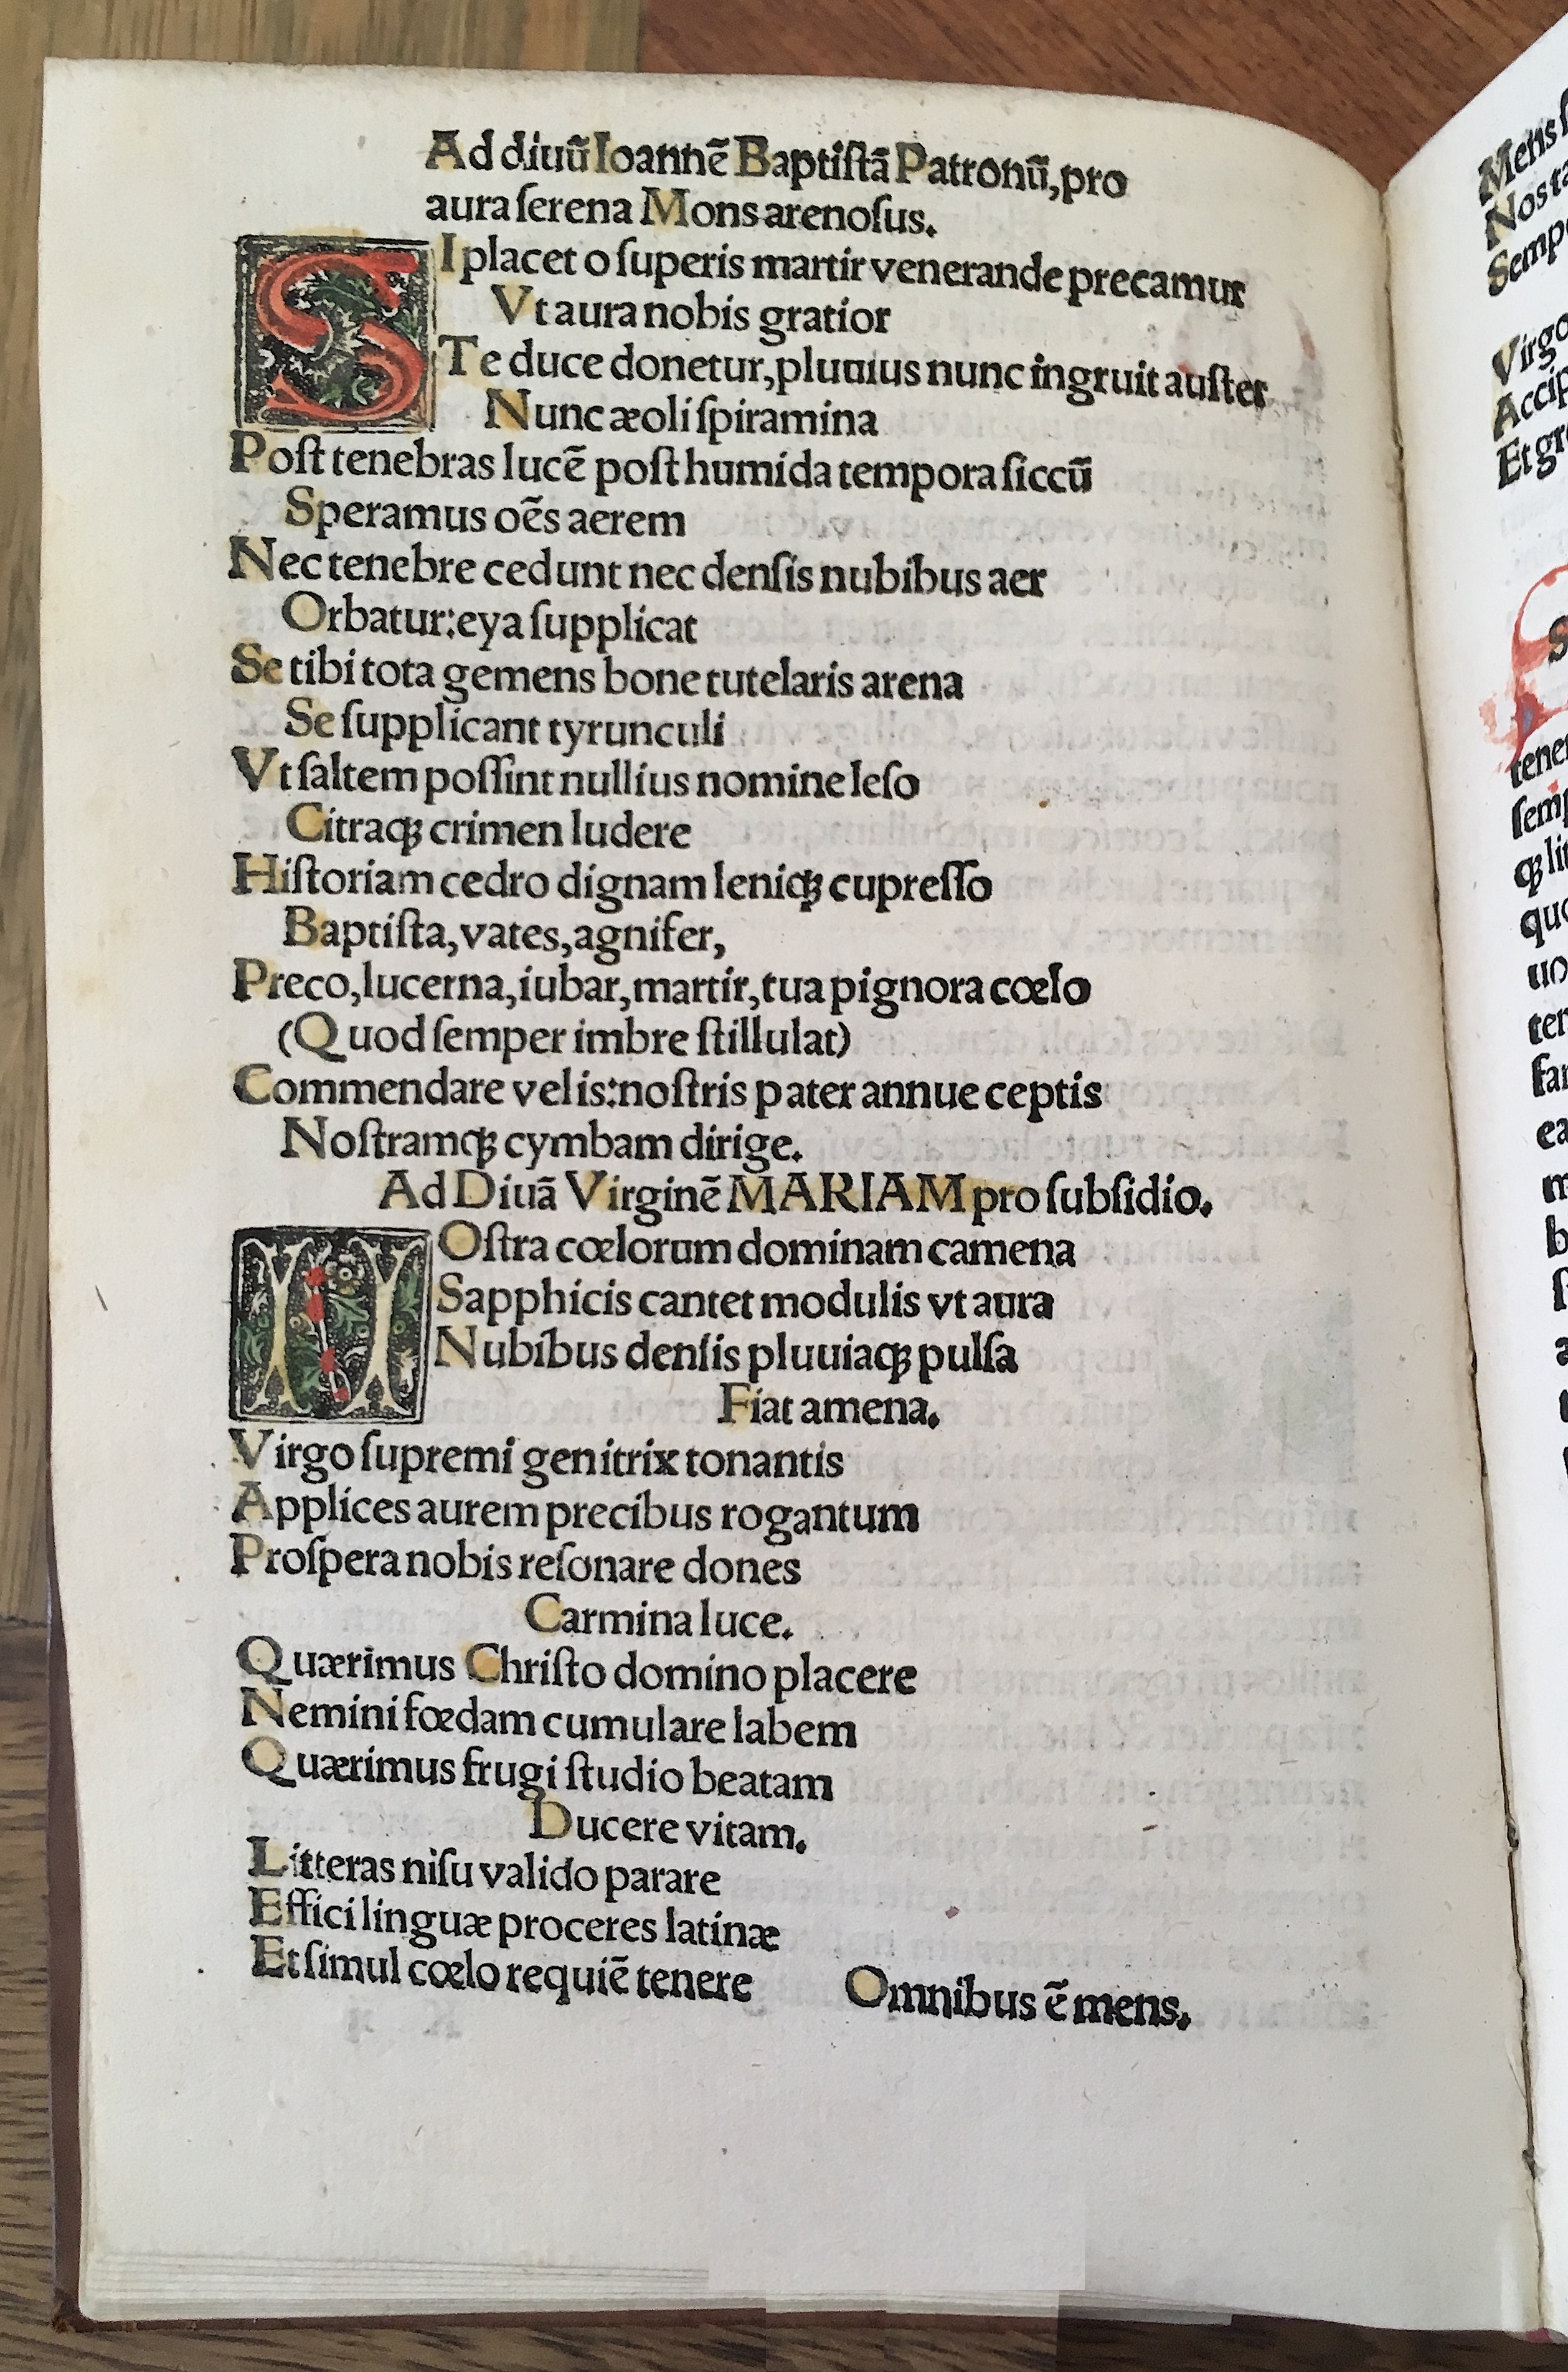 Ad diuũ Ioannẽ Baptiſtã Patronũ, pro
aura ſerena Mons arenoſus.
SI placet o ſuperis martir venerande precamur
Vt aura nobis gratior
Te duce donetur, pluuius nunc ingruit auſter
Nunc æoli ſpiramina
Poſt tenebras lucẽ poſt humida tempora ſiccũ
Speramus oẽs aerem
Nec tenebre cedunt nec denſis nubibus aer
Orbatur: eya ſupplicat
Se tibi tota gemens bone tutelaris arena
Se ſupplicant tyrunculi
Vt ſaltem poſſint nullius nomine leſo
Citraqꝫ crimen ludere
Hiſtoriam cedro dignam leniqꝫ cupreſſo
Baptiſta, vates, agnifer,
Preco, lucerna, iubar, martir, tua pignora cœlo
(Quod ſemper imbre ſtillulat)
Commendare velis: noſtris pater annue ceptis
Noſtramqꝫ cymbam dirige.
Ad Diuã Virginẽ MARIAM pro ſubſidio.
NOſtra cœlorum dominam camena
Sapphicis cantet modulis vt aura
Nubibus denſis pluuiaqꝫ pulſa
Fiat amena.
Virgo ſupremi genitrix tonantis
Applices aurem precibus rogantum
Proſpera nobis reſonare dones
Carmina luce.
Quærimus Chriſto domino placere
Nemini fœdam cumulare labem
Quærimus frugi ſtudio beatam
Ducere vitam.
Litteras niſu valido parare
Effici linguæ proceres latinæ
Et ſimul cœlo requiẽ tenere Omnibus ẽ mens.
Virgo